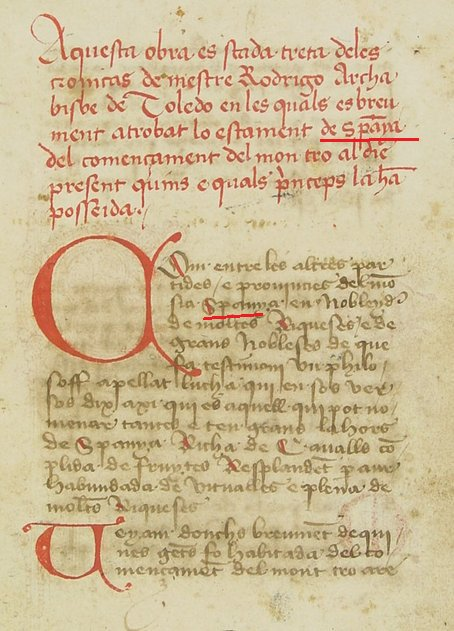 Aquesta obra es stada treta deles
croniques de mestre Rodrigo Archa
bisbe de Toledo en les quals es breu
ment atrobat lo estament de Spãya
del començament del mon tro al die
present quins e quals p̃nceps la hã
posseida.
Com entre les altres par
tides e prouincies del mo
sia Spanya en Noblend
de moltes Riqueses e de
grans Nobleses de que
fa testimoni vn philo
soff apellat lucha qui en sos ver
sos dix axi qui es aquell qui pot no
menar tantes e ten grans lahors
de Spanya Richa de Caualls cõ
plida de fruytes Resplandet p aur
habundada de vitualles e plena de
moltes Riqueses
Ueyam donchs breumẽt de qui
nes gẽts fo habitada del co
mençamẽt del mont tro are